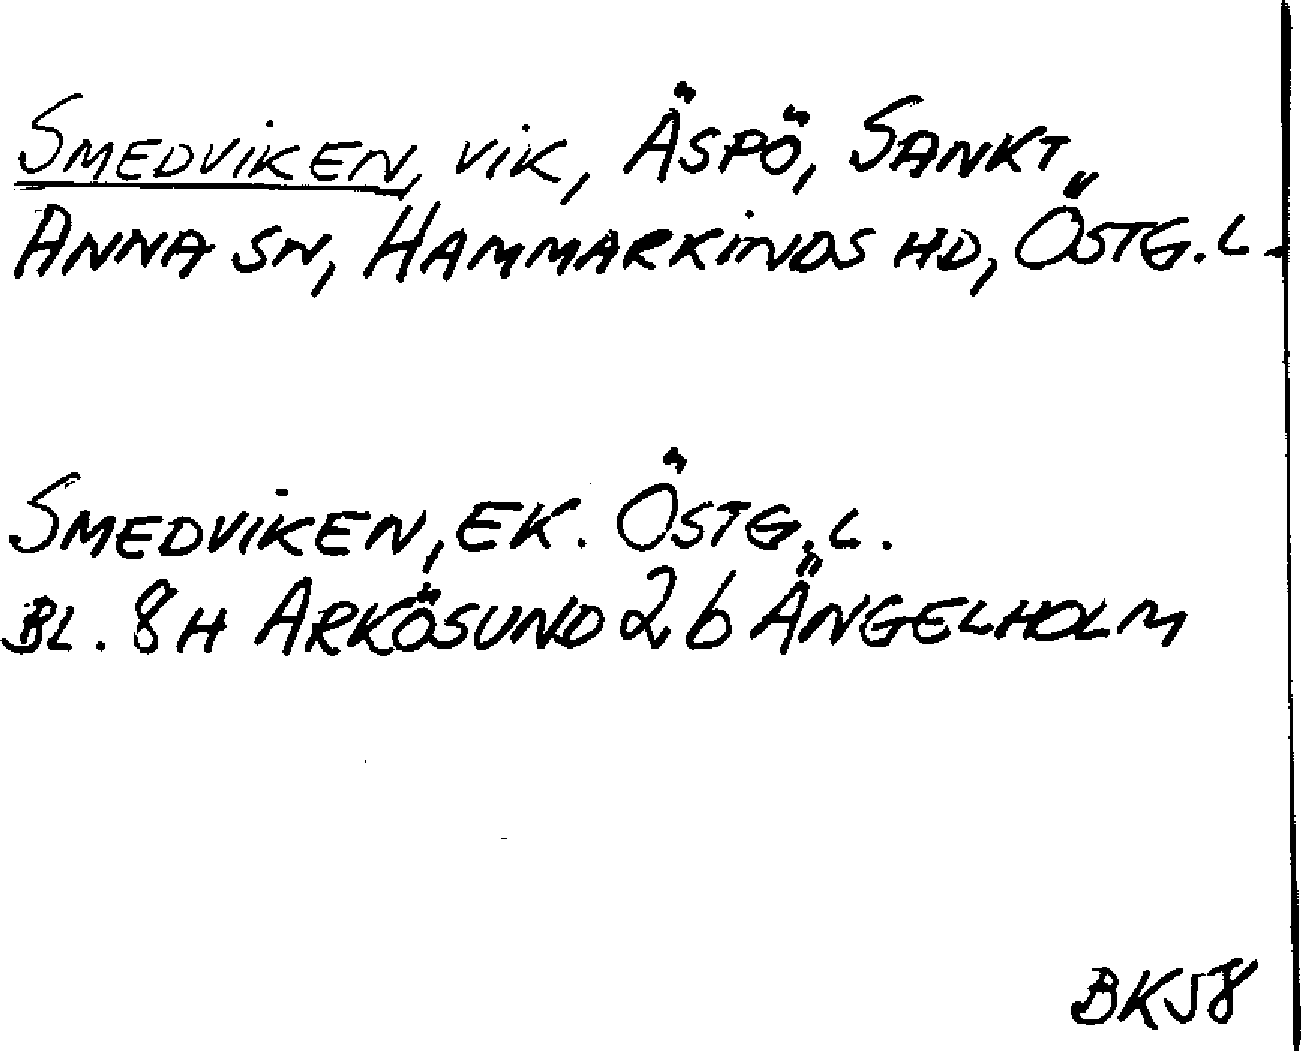 SMEDVIKEN, VIK, ÄSPÖ, SANKT
ANNA SN, HAMMARKINDS HD, ÖSTG. L.
SMEDVIKEN, EK. ÖSTG. L.
BL. 8H ARKÖSUND 2b ÄNGELHOLM
BK58